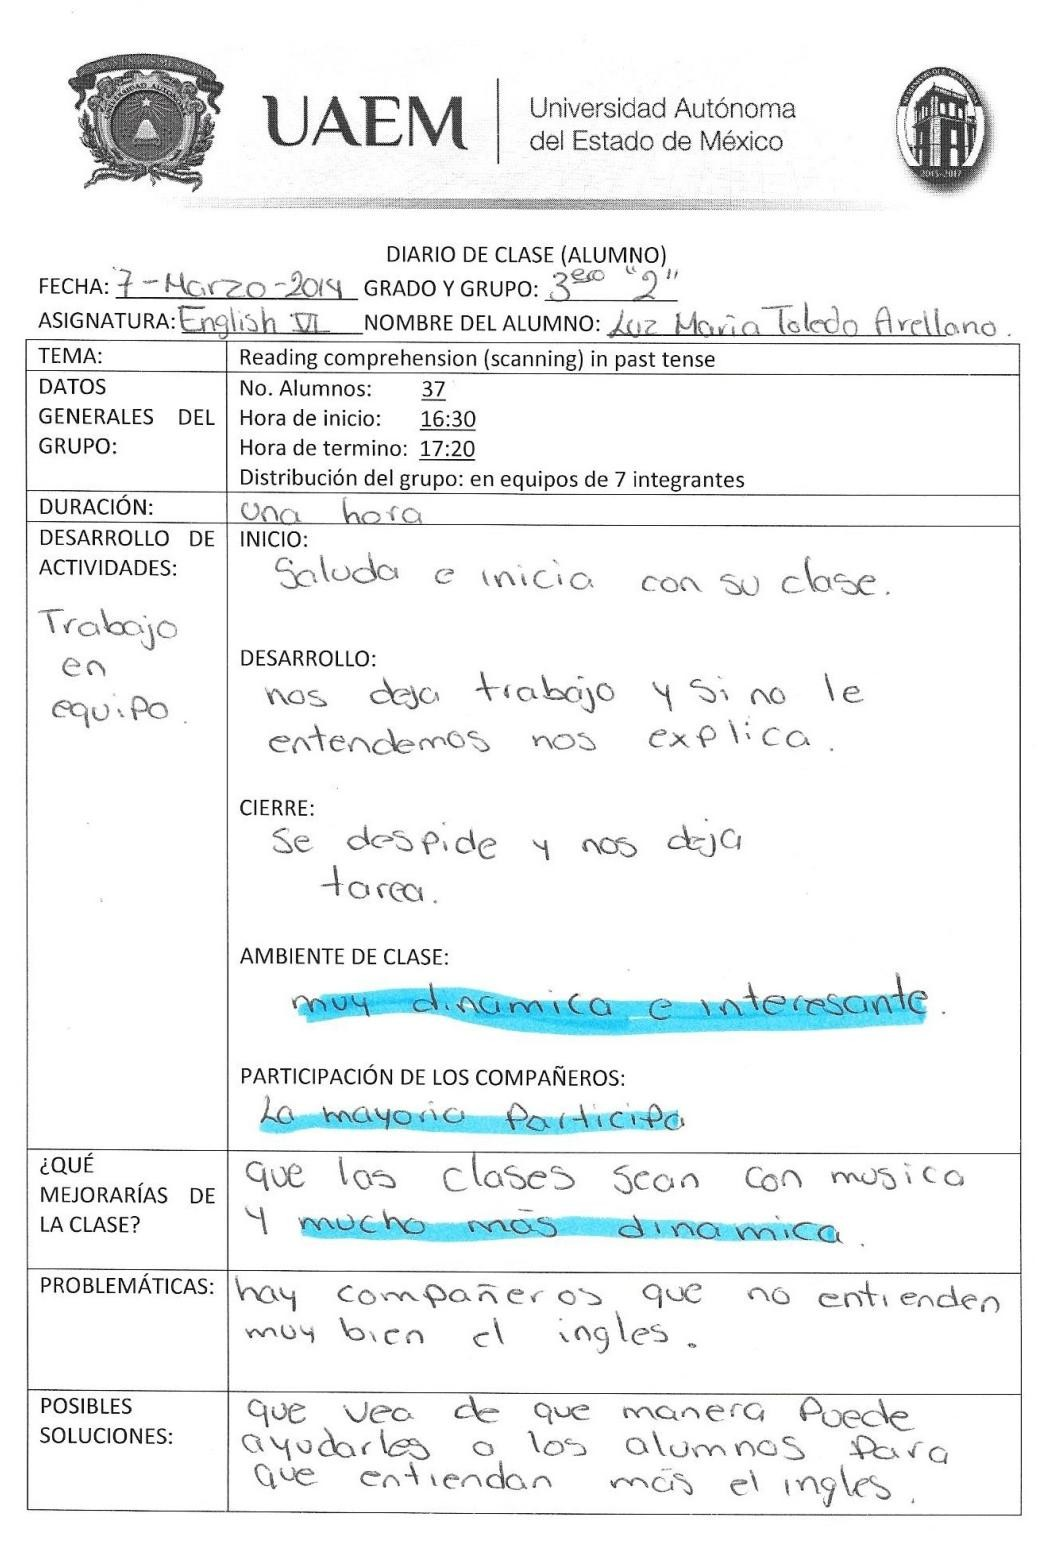 UAEM
Universidad Autónoma
del Estado de México
2013-2017
DIARIO DE CLASE (ALUMNO)
FECHA: 7-Marzo-2014 GRADO Y GRUPO: 3ero "2"
ASIGNATURA: English VI NOMBRE DEL ALUMNO: Luz Maria Toledo Arellano.
TEMA: Reading comprehension (scanning) in past tense
DATOS GENERALES DEL GRUPO:
No. Alumnos: 37
Hora de inicio: 16:30
Hora de termino: 17:20
Distribución del grupo: en equipos de 7 integrantes
DURACIÓN: una hora
DESARROLLO DE
ACTIVIDADES:
Trabajo
en
equipo.
INICIO:
Saluda e inicia con su clase.
DESARROLLO:
nos deja trabajo y si no le
entendemos nos explica.
CIERRE:
Se despide y nos deja
tarea.
AMBIENTE DE CLASE:
muy dinamica e interesante.
PARTICIPACIÓN DE LOS COMPAÑEROS:
La mayoria Participa
¿QUÉ
MEJORARÍAS DE
LA CLASE?
que las clases sean con musica
y mucho más dinamica.
PROBLEMÁTICAS:
hay compañeros que no entienden
muy bien el ingles.
POSIBLES
SOLUCIONES:
que vea de que manera Puede
ayudarles a los alumnos Para
que entiendan más el ingles.